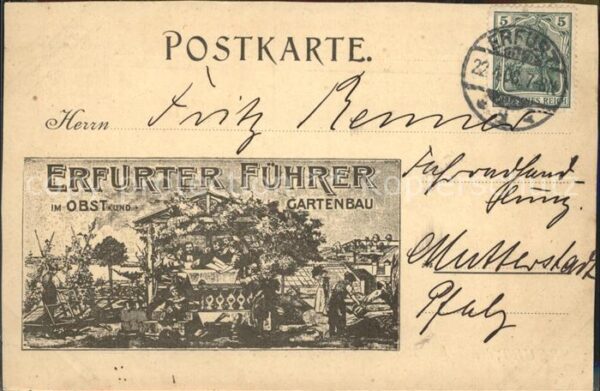 POSTKARTE.
5 5
ERFURT
22.
DEUTSCHES REICH
Herrn Fritz Renner
Fahrradhand-
lung.
Mutterstadt
Pfalz
ERFURTER FÜHRER
IM OBST UND GARTENBAU